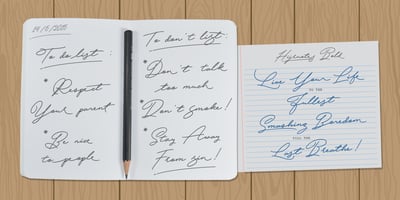 29/5/2015
To do list :
* Respect
Your parent
* Be nice
to people
To don't lizt:
* Don't talk
too much
* Don't Smoke!
* Stay Away
From sin!
Hysnatez Bold
Live Your Life
TO THE
Fullest
Smashing Boredom
TILL THE
Last Breathe!